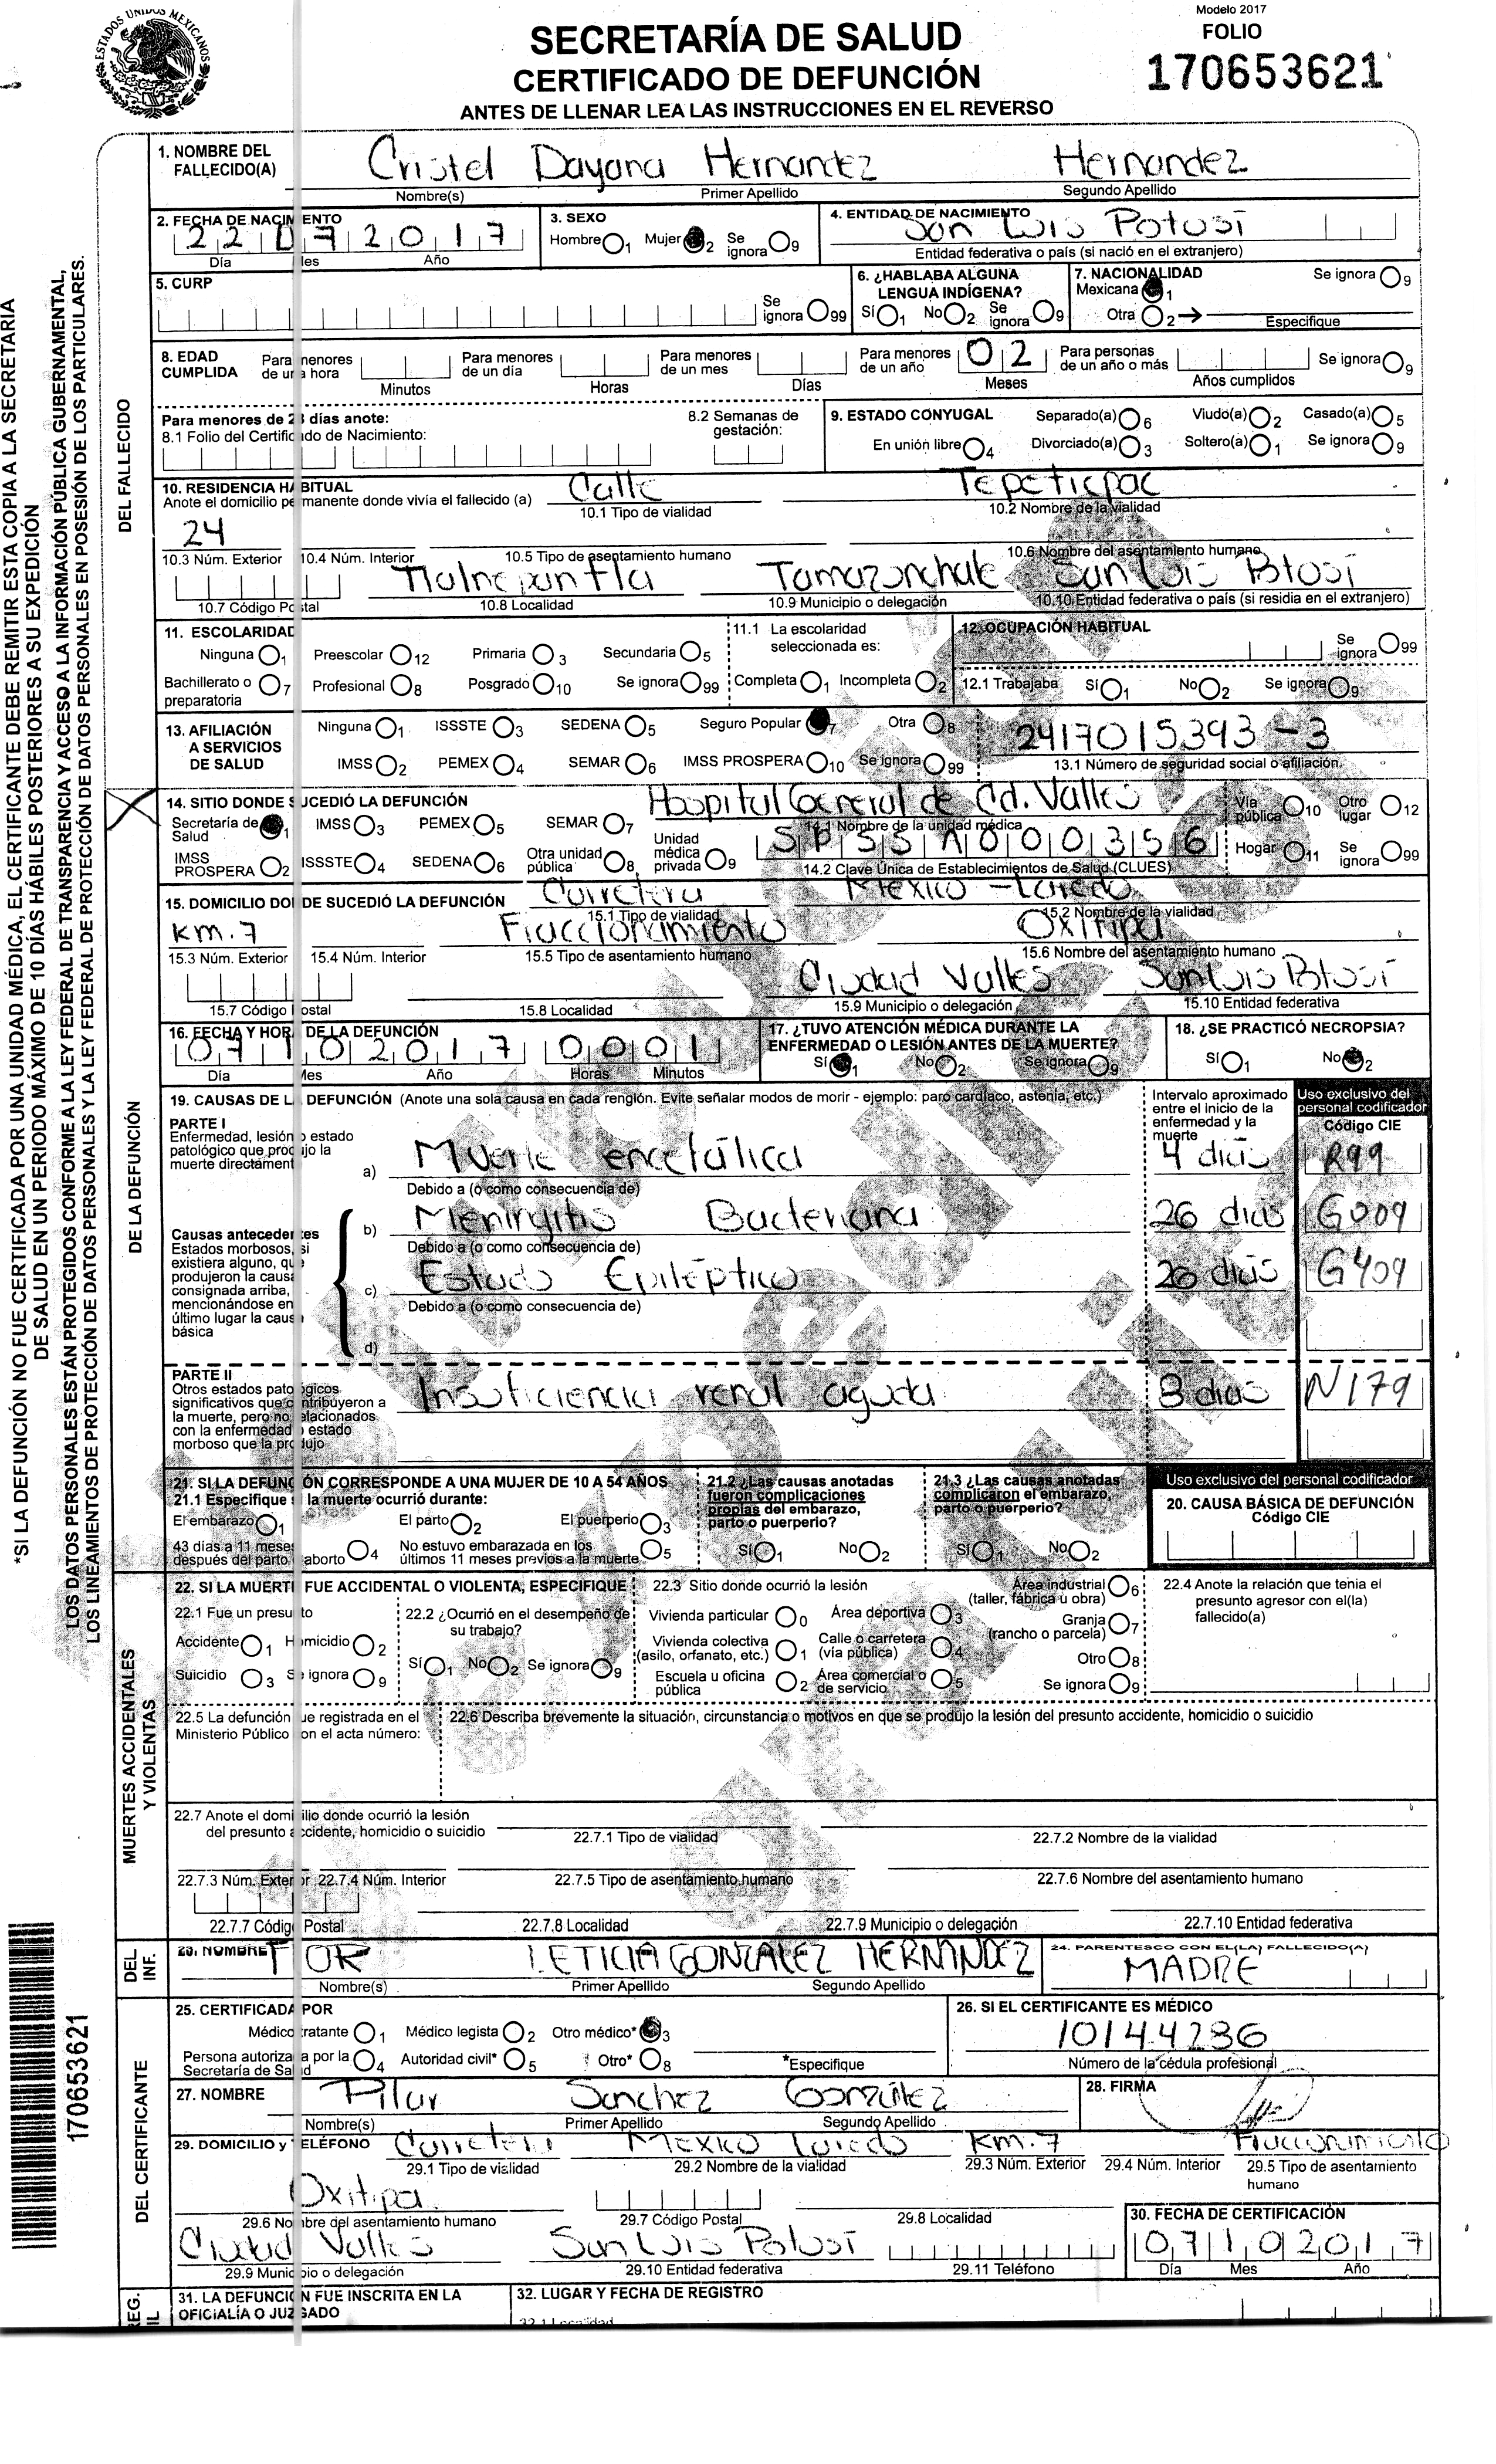 ESTADOS UNIDOS MEXICANOS
Modelo 2017
SECRETARÍA DE SALUD
FOLIO
CERTIFICADO DE DEFUNCIÓN
170653621
ANTES DE LLENAR LEA LAS INSTRUCCIONES EN EL REVERSO
*SI LA DEFUNCIÓN NO FUE CERTIFICADA POR UNA UNIDAD MÉDICA, EL CERTIFICANTE DEBE REMITIR ESTA COPIA A LA SECRETARIA
DE SALUD EN UN PERIODO MÁXIMO DE 10 DÍAS HÁBILES POSTERIORES A SU EXPEDICIÓN
LOS DATOS PERSONALES ESTÁN PROTEGIDOS CONFORME A LA LEY FEDERAL DE TRANSPARENCIA Y ACCESO A LA INFORMACIÓN PÚBLICA GUBERNAMENTAL,
LOS LINEAMIENTOS DE PROTECCIÓN DE DATOS PERSONALES Y LA LEY FEDERAL DE PROTECCIÓN DE DATOS PERSONALES EN POSESIÓN DE LOS PARTICULARES.
DEL FALLECIDO
1. NOMBRE DEL FALLECIDO(A) Cristel Dayana Hernandez Hernandez
Nombre(s) Primer Apellido Segundo Apellido
2. FECHA DE NACIMIENTO 3. SEXO 4. ENTIDAD DE NACIMIENTO San Luis Potosí
22072017 Hombre 1 Mujer 2 Se ignora 9
Día Mes Año Entidad federativa o país (si nació en el extranjero)
5. CURP Se ignora 99
6. ¿HABLABA ALGUNA LENGUA INDÍGENA? Sí 1 No 2 Se ignora 9
7. NACIONALIDAD Se ignora 9
Mexicana 1
Otra 2 Especifique
8. EDAD CUMPLIDA Para menores de una hora Para menores de un día Para menores de un mes Para menores de un año 02 Para personas de un año o más Se ignora 9
Minutos Horas Días Meses Años cumplidos
Para menores de 28 días anote:
8.1 Folio del Certificado de Nacimiento: 8.2 Semanas de gestación:
9. ESTADO CONYUGAL Separado(a) 6 Viudo(a) 2 Casado(a) 5
En unión libre 4 Divorciado(a) 3 Soltero(a) 1 Se ignora 9
10. RESIDENCIA HABITUAL Calle Tepeticpac
Anote el domicilio permanente donde vivía el fallecido (a) 10.1 Tipo de vialidad 10.2 Nombre de la vialidad
24
10.3 Núm. Exterior 10.4 Núm. Interior 10.5 Tipo de asentamiento humano 10.6 Nombre del asentamiento humano
Tlalnepantla Tamazunchale San Luis Potosí
10.7 Código Postal 10.8 Localidad 10.9 Municipio o delegación 10.10 Entidad federativa o país (si residia en el extranjero)
11. ESCOLARIDAD 11.1 La escolaridad seleccionada es: 12. OCUPACIÓN HABITUAL
Ninguna 1 Preescolar 12 Primaria 3 Secundaria 5 Se ignora 99
Bachillerato o preparatoria 7 Profesional 8 Posgrado 10 Se ignora 99 Completa 1 Incompleta 2 12.1 Trabajaba Sí 1 No 2 Se ignora 9
13. AFILIACIÓN A SERVICIOS DE SALUD
Ninguna 1 ISSSTE 3 SEDENA 5 Seguro Popular 7 Otra 8 2417015393-3
IMSS 2 PEMEX 4 SEMAR 6 IMSS PROSPERA 10 Se ignora 99 13.1 Número de seguridad social o afiliación
DE LA DEFUNCIÓN
14. SITIO DONDE SUCEDIÓ LA DEFUNCIÓN Hospital General de Cd. Valles
Secretaría de Salud 1 IMSS 3 PEMEX 5 SEMAR 7 14.1 Nombre de la unidad médica Vía pública 10 Otro lugar 12
IMSS PROSPERA 2 ISSSTE 4 SEDENA 6 Otra unidad pública 8 Unidad médica privada 9 SPSSA000356 Hogar 11 Se ignora 99
14.2 Clave Única de Establecimientos de Salud (CLUES)
15. DOMICILIO DONDE SUCEDIÓ LA DEFUNCIÓN Carretera Mexico - Laredo
15.1 Tipo de vialidad 15.2 Nombre de la vialidad
Km. 7 Fraccionamiento Oxitipa
15.3 Núm. Exterior 15.4 Núm. Interior 15.5 Tipo de asentamiento humano 15.6 Nombre del asentamiento humano
Ciudad Valles San Luis Potosí
15.7 Código Postal 15.8 Localidad 15.9 Municipio o delegación 15.10 Entidad federativa
16. FECHA Y HORA DE LA DEFUNCIÓN 17. ¿TUVO ATENCIÓN MÉDICA DURANTE LA ENFERMEDAD O LESIÓN ANTES DE LA MUERTE? 18. ¿SE PRACTICÓ NECROPSIA?
07102017 0001 Sí 1 No 2 Se ignora 9 Sí 1 No 2
Día Mes Año Horas Minutos
19. CAUSAS DE LA DEFUNCIÓN (Anote una sola causa en cada renglón. Evite señalar modos de morir - ejemplo: paro cardíaco, astenia, etc.)
Intervalo aproximado entre el inicio de la enfermedad y la muerte
Uso exclusivo del personal codificador
Código CIE
PARTE I
Enfermedad, lesión o estado patológico que produjo la muerte directamente
a) Muerte encefálica 4 dias R99
Debido a (o como consecuencia de)
Causas antecedentes
Estados morbosos, si existiera alguno, que produjeron la causa consignada arriba, mencionándose en último lugar la causa básica
b) Meningitis Bacteriana 26 dias G009
Debido a (o como consecuencia de)
c) Estado Epiléptico 26 dias G409
Debido a (o como consecuencia de)
d)
PARTE II
Otros estados patológicos significativos que contribuyeron a la muerte, pero no relacionados con la enfermedad o estado morboso que la produjo
Insuficiencia renal aguda 3 dias N179
21. SI LA DEFUNCIÓN CORRESPONDE A UNA MUJER DE 10 A 54 AÑOS
21.1 Especifique si la muerte ocurrió durante:
El embarazo 1 El parto 2 El puerperio 3
43 días a 11 meses después del parto aborto 4 No estuvo embarazada en los últimos 11 meses previos a la muerte 5
21.2 ¿Las causas anotadas fueron complicaciones propias del embarazo, parto o puerperio? Sí 1 No 2
21.3 ¿Las causas anotadas complicaron el embarazo, parto o puerperio? Sí 1 No 2
Uso exclusivo del personal codificador
20. CAUSA BÁSICA DE DEFUNCIÓN
Código CIE
MUERTES ACCIDENTALES Y VIOLENTAS
22. SI LA MUERTE FUE ACCIDENTAL O VIOLENTA, ESPECIFIQUE
22.1 Fue un presunto
Accidente 1 Homicidio 2
Suicidio 3 Se ignora 9
22.2 ¿Ocurrió en el desempeño de su trabajo?
Sí 1 No 2 Se ignora 9
22.3 Sitio donde ocurrió la lesión
Vivienda particular 0 Área deportiva 3 Área industrial (taller, fábrica u obra) 6
Vivienda colectiva (asilo, orfanato, etc.) 1 Calle o carretera (vía pública) 4 Granja (rancho o parcela) 7
Otro 8
Escuela u oficina pública 2 Área comercial o de servicio 5 Se ignora 9
22.4 Anote la relación que tenia el presunto agresor con el(la) fallecido(a)
22.5 La defunción fue registrada en el Ministerio Público con el acta número:
22.6 Describa brevemente la situación, circunstancia o motivos en que se produjo la lesión del presunto accidente, homicidio o suicidio
22.7 Anote el domicilio donde ocurrió la lesión del presunto accidente, homicidio o suicidio
22.7.1 Tipo de vialidad 22.7.2 Nombre de la vialidad
22.7.3 Núm. Exterior 22.7.4 Núm. Interior 22.7.5 Tipo de asentamiento humano 22.7.6 Nombre del asentamiento humano
22.7.7 Código Postal 22.7.8 Localidad 22.7.9 Municipio o delegación 22.7.10 Entidad federativa
DEL INF.
23. NOMBRE LETICIA GONZALEZ HERNANDEZ 24. PARENTESCO CON EL(LA) FALLECIDO(A)
MADRE
Nombre(s) Primer Apellido Segundo Apellido
DEL CERTIFICANTE
25. CERTIFICADA POR 26. SI EL CERTIFICANTE ES MÉDICO
Médico tratante 1 Médico legista 2 Otro médico* 3 10144236
Persona autorizada por la Secretaría de Salud 4 Autoridad civil* 5 Otro* 8 *Especifique Número de la cédula profesional
27. NOMBRE Pilar Sanchez González 28. FIRMA
Nombre(s) Primer Apellido Segundo Apellido
29. DOMICILIO y TELÉFONO Carretera Mexico Laredo Km. 7 Fraccionamiento
29.1 Tipo de vialidad 29.2 Nombre de la vialidad 29.3 Núm. Exterior 29.4 Núm. Interior 29.5 Tipo de asentamiento humano
Oxitipa
29.6 Nombre del asentamiento humano 29.7 Código Postal 29.8 Localidad 30. FECHA DE CERTIFICACIÓN
Ciudad Valles San Luis Potosí 07102017
29.9 Municipio o delegación 29.10 Entidad federativa 29.11 Teléfono Día Mes Año
31. LA DEFUNCIÓN FUE INSCRITA EN LA OFICIALÍA O JUZGADO 32. LUGAR Y FECHA DE REGISTRO
32.1 Localidad
170653621